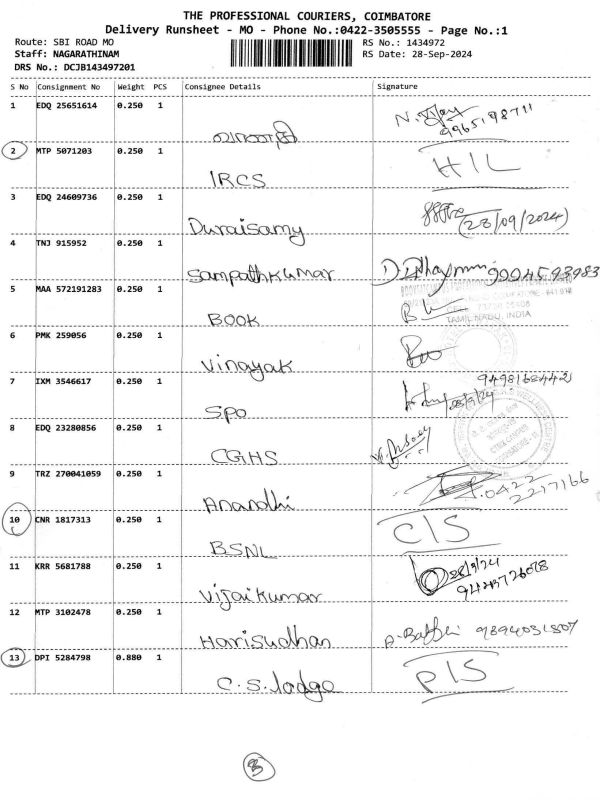 THE PROFESSIONAL COURIERS, COIMBATORE
Delivery Runsheet - MO - Phone No.:0422-3505555 - Page No.:1
Route: SBI ROAD MO RS No.: 1434972
Staff: NAGARATHINAM RS Date: 28-Sep-2024
DRS No.: DCJB143497201
S No Consignment No Weight PCS Consignee Details Signature
1 EDQ 25651614 0.250 1
2 MTP 5071203 0.250 1 IRCS H/L
3 EDQ 24609736 0.250 1 Duraisamy (28/09/2024)
4 TNJ 915952 0.250 1 Sampathkumar 9994593983
5 MAA 572191283 0.250 1 BOOK
TAMIL NADU, INDIA
6 PMK 259056 0.250 1 Vinayak
7 IXM 3546617 0.250 1 SPO 28/9/24
8 EDQ 23280856 0.250 1 CGHS
9 TRZ 270041059 0.250 1 Anandhi 0422
2217166
10 CNR 1817313 0.250 1 BSNL C/S
11 KRR 5681788 0.250 1 Vijaikumar 28/9/24
12 MTP 3102478 0.250 1 Harisudhan 9894031507
13 DPI 5284798 0.880 1 C.S.lodge P/S
3